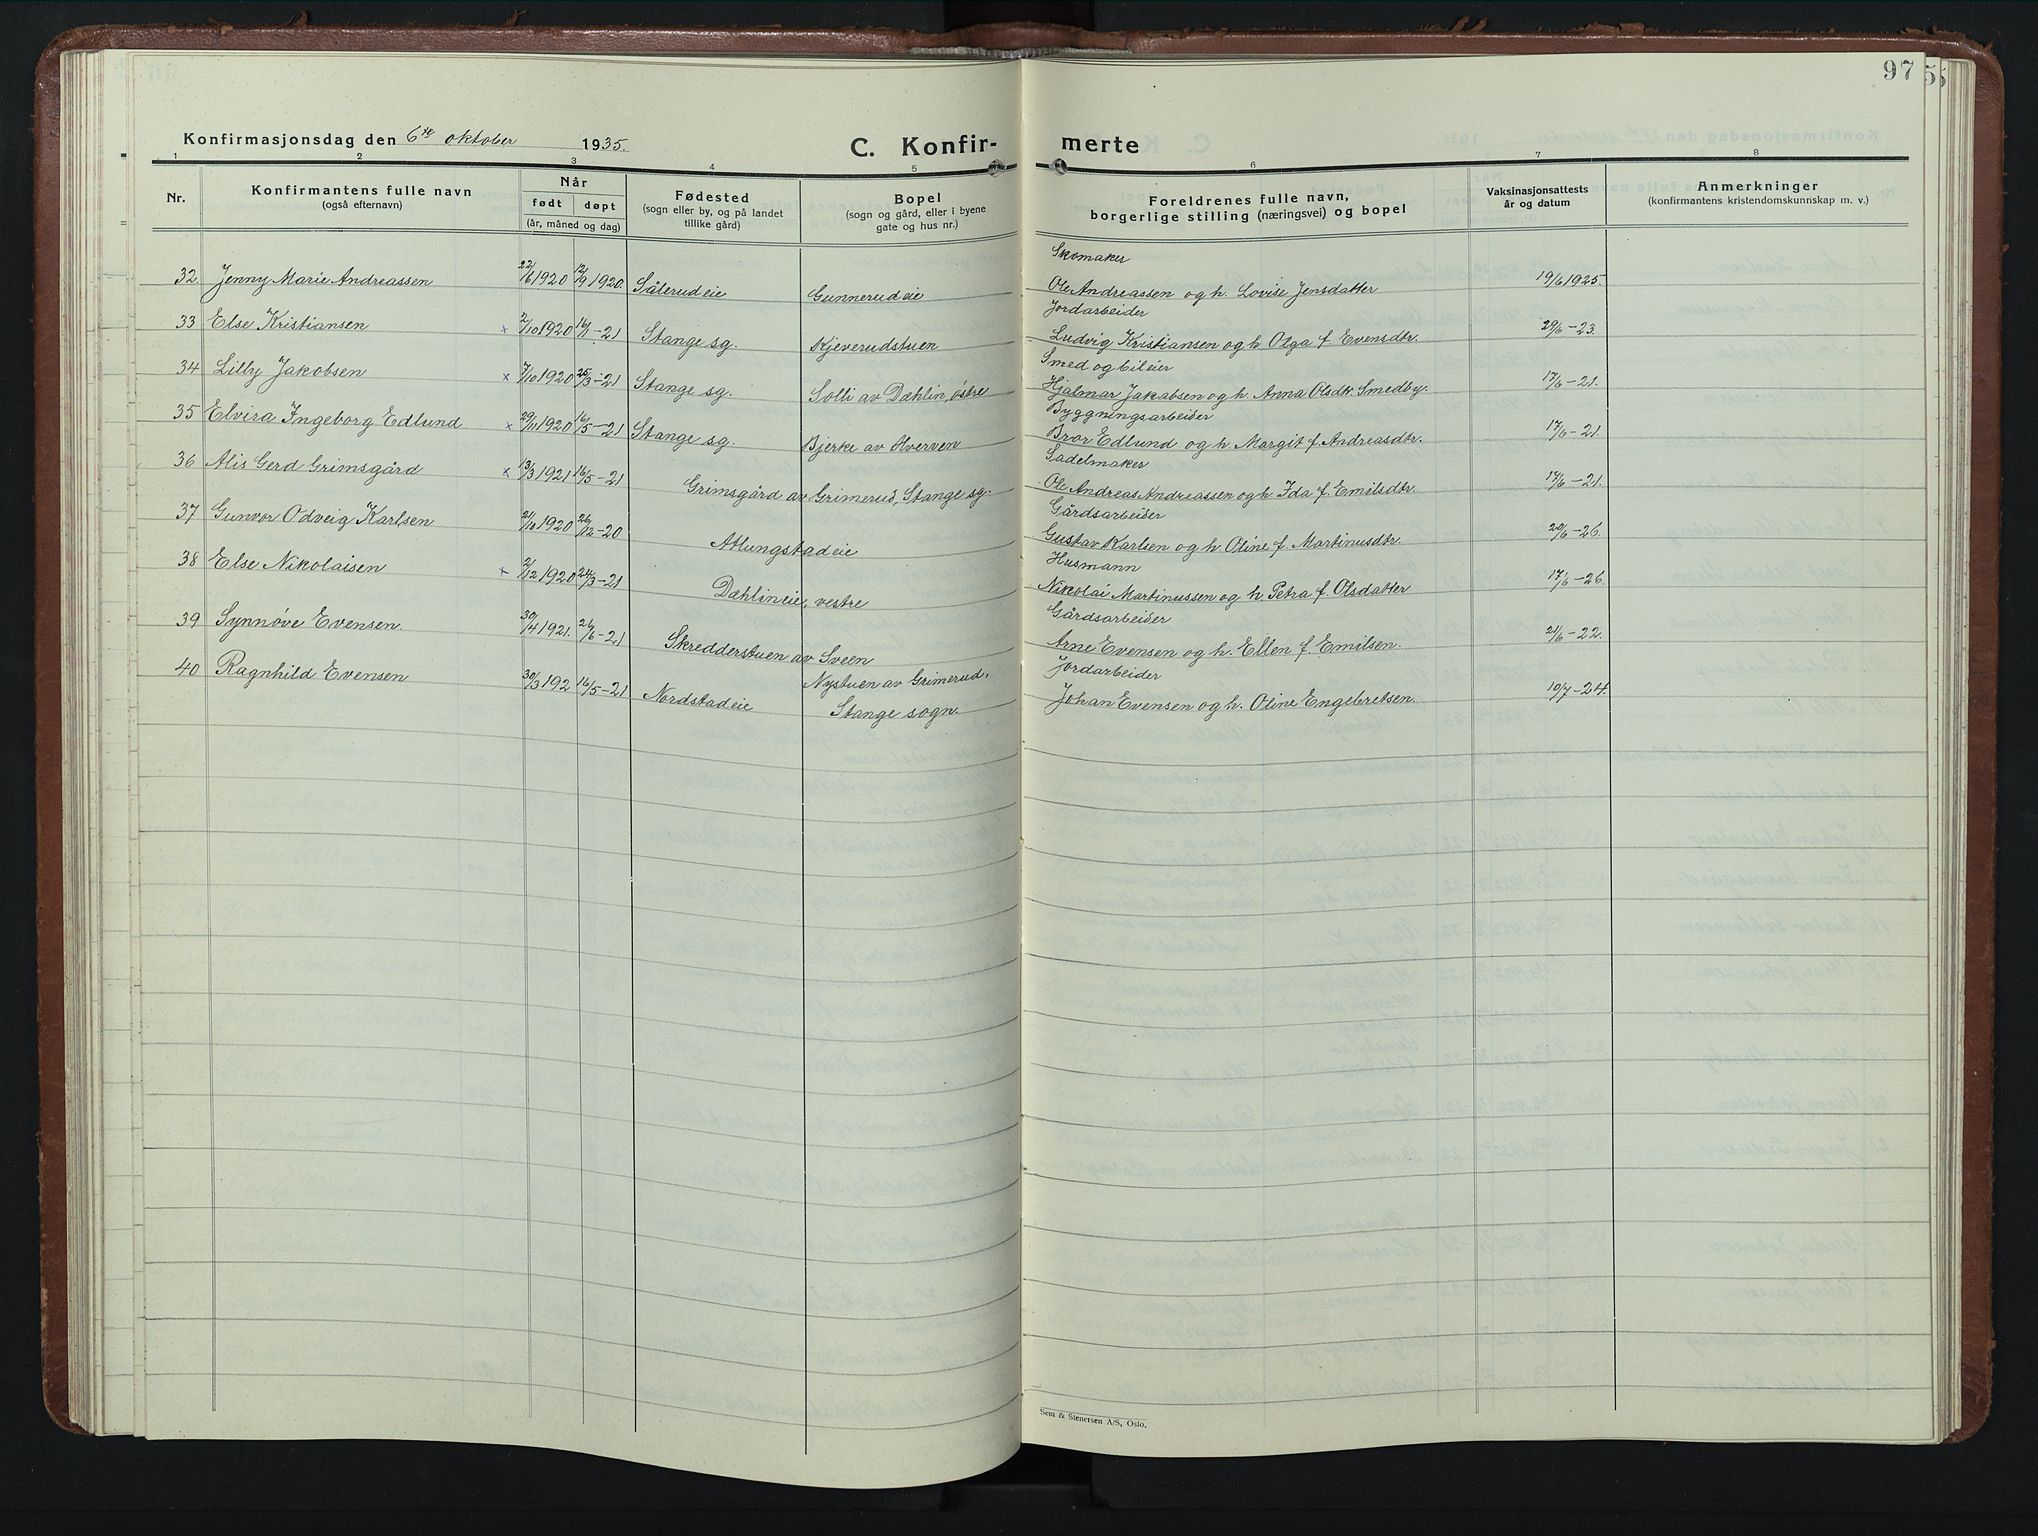 97
Konfirmasjonsdag den 6te oktober 1935.
C. Konfir-
merte
1 2 3 4 5 6 7 8
Nr.
Konfirmantens fulle navn
(også efternavn)
Når
født døpt
(år, måned og dag)
Fødested
(sogn eller by, og på landet
tillike gård)
Bopel
(sogn og gård, eller i byene
gate og hus nr.)
Foreldrenes fulle navn,
borgerlige stilling (næringsvei) og bopel
Vaksinasjonsattests
år og datum
Anmerkninger
(konfirmantens kristendomskunnskap m. v.)
Skomaker
32. Jenny Marie Andreassen 22/6 1920 12/9 1920. Sålerudeie Gunnerudeie Ole Andreassen og h. Lovise Jensdatter 19/6 1925.
Jordarbeider
33 Else Kristiansen x 2/10 1920 16/1 - 21 Stange sg. Kjeverudstuen Ludvig Kristiansen og h. Olga f. Evensdtr. 29/6 - 23.
Smed og bileier
34 Lilly Jakobsen x 7/10 1920 25/3 - 21 Stange sg. Solli av Dæhlin, østre Hjalmar Jakobsen og h. Anna Olsdtr. Smedby. 17/6 - 21.
Byggningsarbeider
35 Elvira Ingeborg Edlund x 29/11 1920 16/5 - 21 Stange sg. Bjerke av Hverven Bror Edlund og h. Margit f. Andreasdtr. 17/6 - 21.
Sadelmaker
36 Alis Gerd Grimsgård x 13/3 1921 16/5 - 21 Grimsgård av Grimerud, Stange sg. Ole Andreas Andreassen og h. Ida f. Emilsdtr. 17/6 - 21.
Gårdsarbeider
37 Gunvor Odveig Karlsen 21/10 1920 26/12 - 20 Atlungstadeie Gustav Karlsen og h. Oline f. Martinusdtr. 20/6 - 26.
Husmann
38 Else Nikolaisen x 2/12 1920 24/3 - 21 Dæhlineie, vestre Nikolai Martinussen og h. Petra f. Olsdatter 17/6 - 26.
Gårdsarbeider
39 Synnøve Evensen. 30/4 1921. 26/6 - 21 Skredderstuen av Sveen Arne Evensen og h. Ellen f. Emilsen. 21/6 - 22.
Jordarbeider
40 Ragnhild Evensen 30/3 192 16/5 - 21 Nordstadeie Nystuen av Grimerud, Johan Evensen og h. Oline Engebretsen. 10/7 - 24.
Stange sogn.
Sem & Stenersen A/S, Oslo.